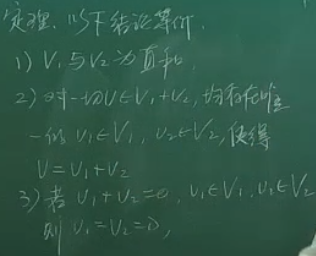 定理. 以下结论等价.
1) V₁与V₂为直和,
2) 对一切v∈V₁+V₂, 均存在唯
一的 v₁∈V₁, v₂∈V₂, 使得
v=v₁+v₂
3) 若 v₁+v₂=0, v₁∈V₁, v₂∈V₂
则 v₁=v₂=0,